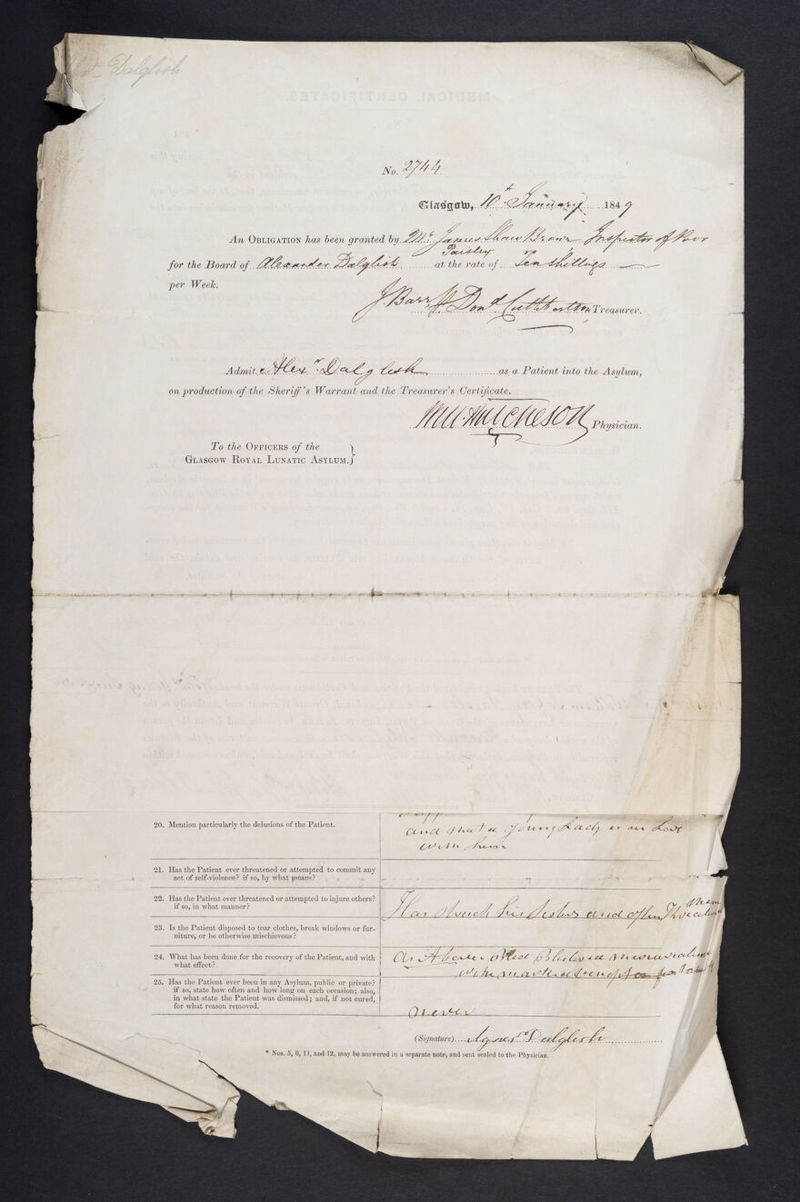 Dalglish
No. 2744
Glasgow, 10th January 1849
An Obligation has been granted by Mr. James Shaw Brown Inspector of Poor
Paisley
for the Board of Alexander Dalglish at the rate of Ten Shillings
per Week.
J Barr p. Dond. Cuthbertson Treasurer.
Admit Alexr. Dalglish as a Patient into the Asylum,
on production of the Sheriff's Warrant and the Treasurer's Certificate.
Wm Hutcheson Physician.
To the Officers of the
Glasgow Royal Lunatic Asylum. }
20. Mention particularly the delusions of the Patient.
and that a young Lady is in Love
with him
21. Has the Patient ever threatened or attempted to commit any
act of self-violence? if so, by what means?
22. Has the Patient ever threatened or attempted to injure others?
if so, in what manner?
Has struck his Sisters and often
them
23. Is the Patient disposed to tear clothes, break windows or fur-
niture, or be otherwise mischievous?
24. What has been done for the recovery of the Patient, and with
what effect?
25. Has the Patient ever been in any Asylum, public or private?
if so, state how often and how long on each occasion; also,
in what state the Patient was dismissed; and, if not cured,
for what reason removed.
never
(Signature) Agnes Dalglish
* Nos. 5, 6, 11, and 12, may be answered in a separate note, and sent sealed to the Physician.